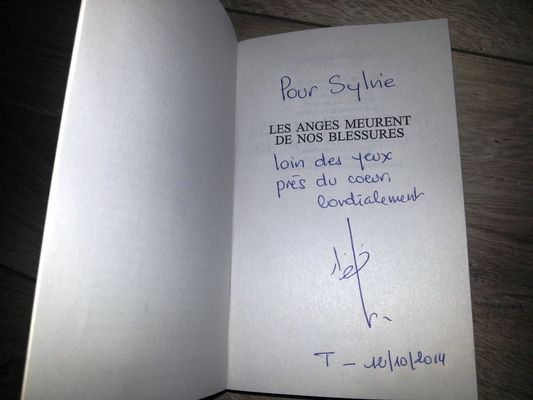 Pour Sylvie
LES ANGES MEURENT
DE NOS BLESSURES
loin des yeux
près du coeur
Cordialement
T - 12/10/2014